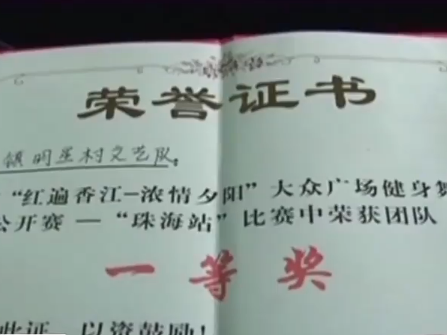 荣誉证书
镇明星村文艺队：
“红遍香江-浓情夕阳”大众广场健身舞
公开赛 — “珠海站”比赛中荣获团队
一等奖
此证，以资鼓励！